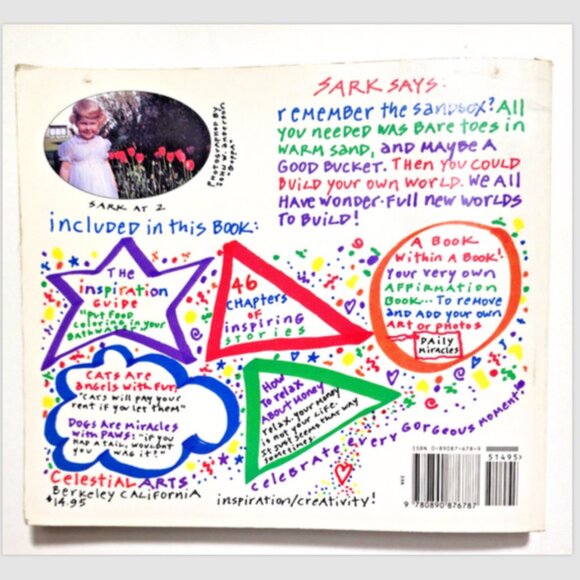 SARK SAYS:
rEMEMBER tHE SaNDBOX? All
YOU NEEDED WAS BARE TOES in
WARM SAND, AND MAYBE A
GOOD BUCKET. Then YOU COULD
BUILD YOUR OWN WORLD. WE All
HAVE WONDER-FULL NEW WORLDS
TO BUILD!
PHOTOGRAPHED BY
JOHN W. ANDERSON
SARK AT 2
included in this BOOK:
THE
inspiration
GUIDE
"PUT FOOD
COLORING in YOUR
BATHWATER"
46
CHAPTERS
OF
inspiring
STORIES
A BOOK
Within A BOOK!
YOUR VERY OWN
AFFIRMATION
BOOK... TO REMOVE
AND ADD YOUR OWN
ART OR PHOTOS
DAILY
MIRACLES
CATS ARE
ANGELS WITH FUR:
"CATS WILL PAY YOUR
RENT IF YOU LET THEM"
DOGS ARE MIRACLES
WITH PAWS: "IF YOU
HAD A TAIL, WOULDN'T
YOU WAG IT?"
HOW
TO RELAX
ABOUT MONEY
RELAX. YOUR MONEY
IS NOT YOUR LIFE.
IT JUST SEEMS THAT WAY
SOMETIMES.
CELEBRATE EVERY GORGEOUS MOMENT!
CELESTIAL ARTS
BERKELEY CALIFORNIA
$14.95
inspiration/creativity!
ISBN 0-89087-678-9
51495>
9 780890 876787